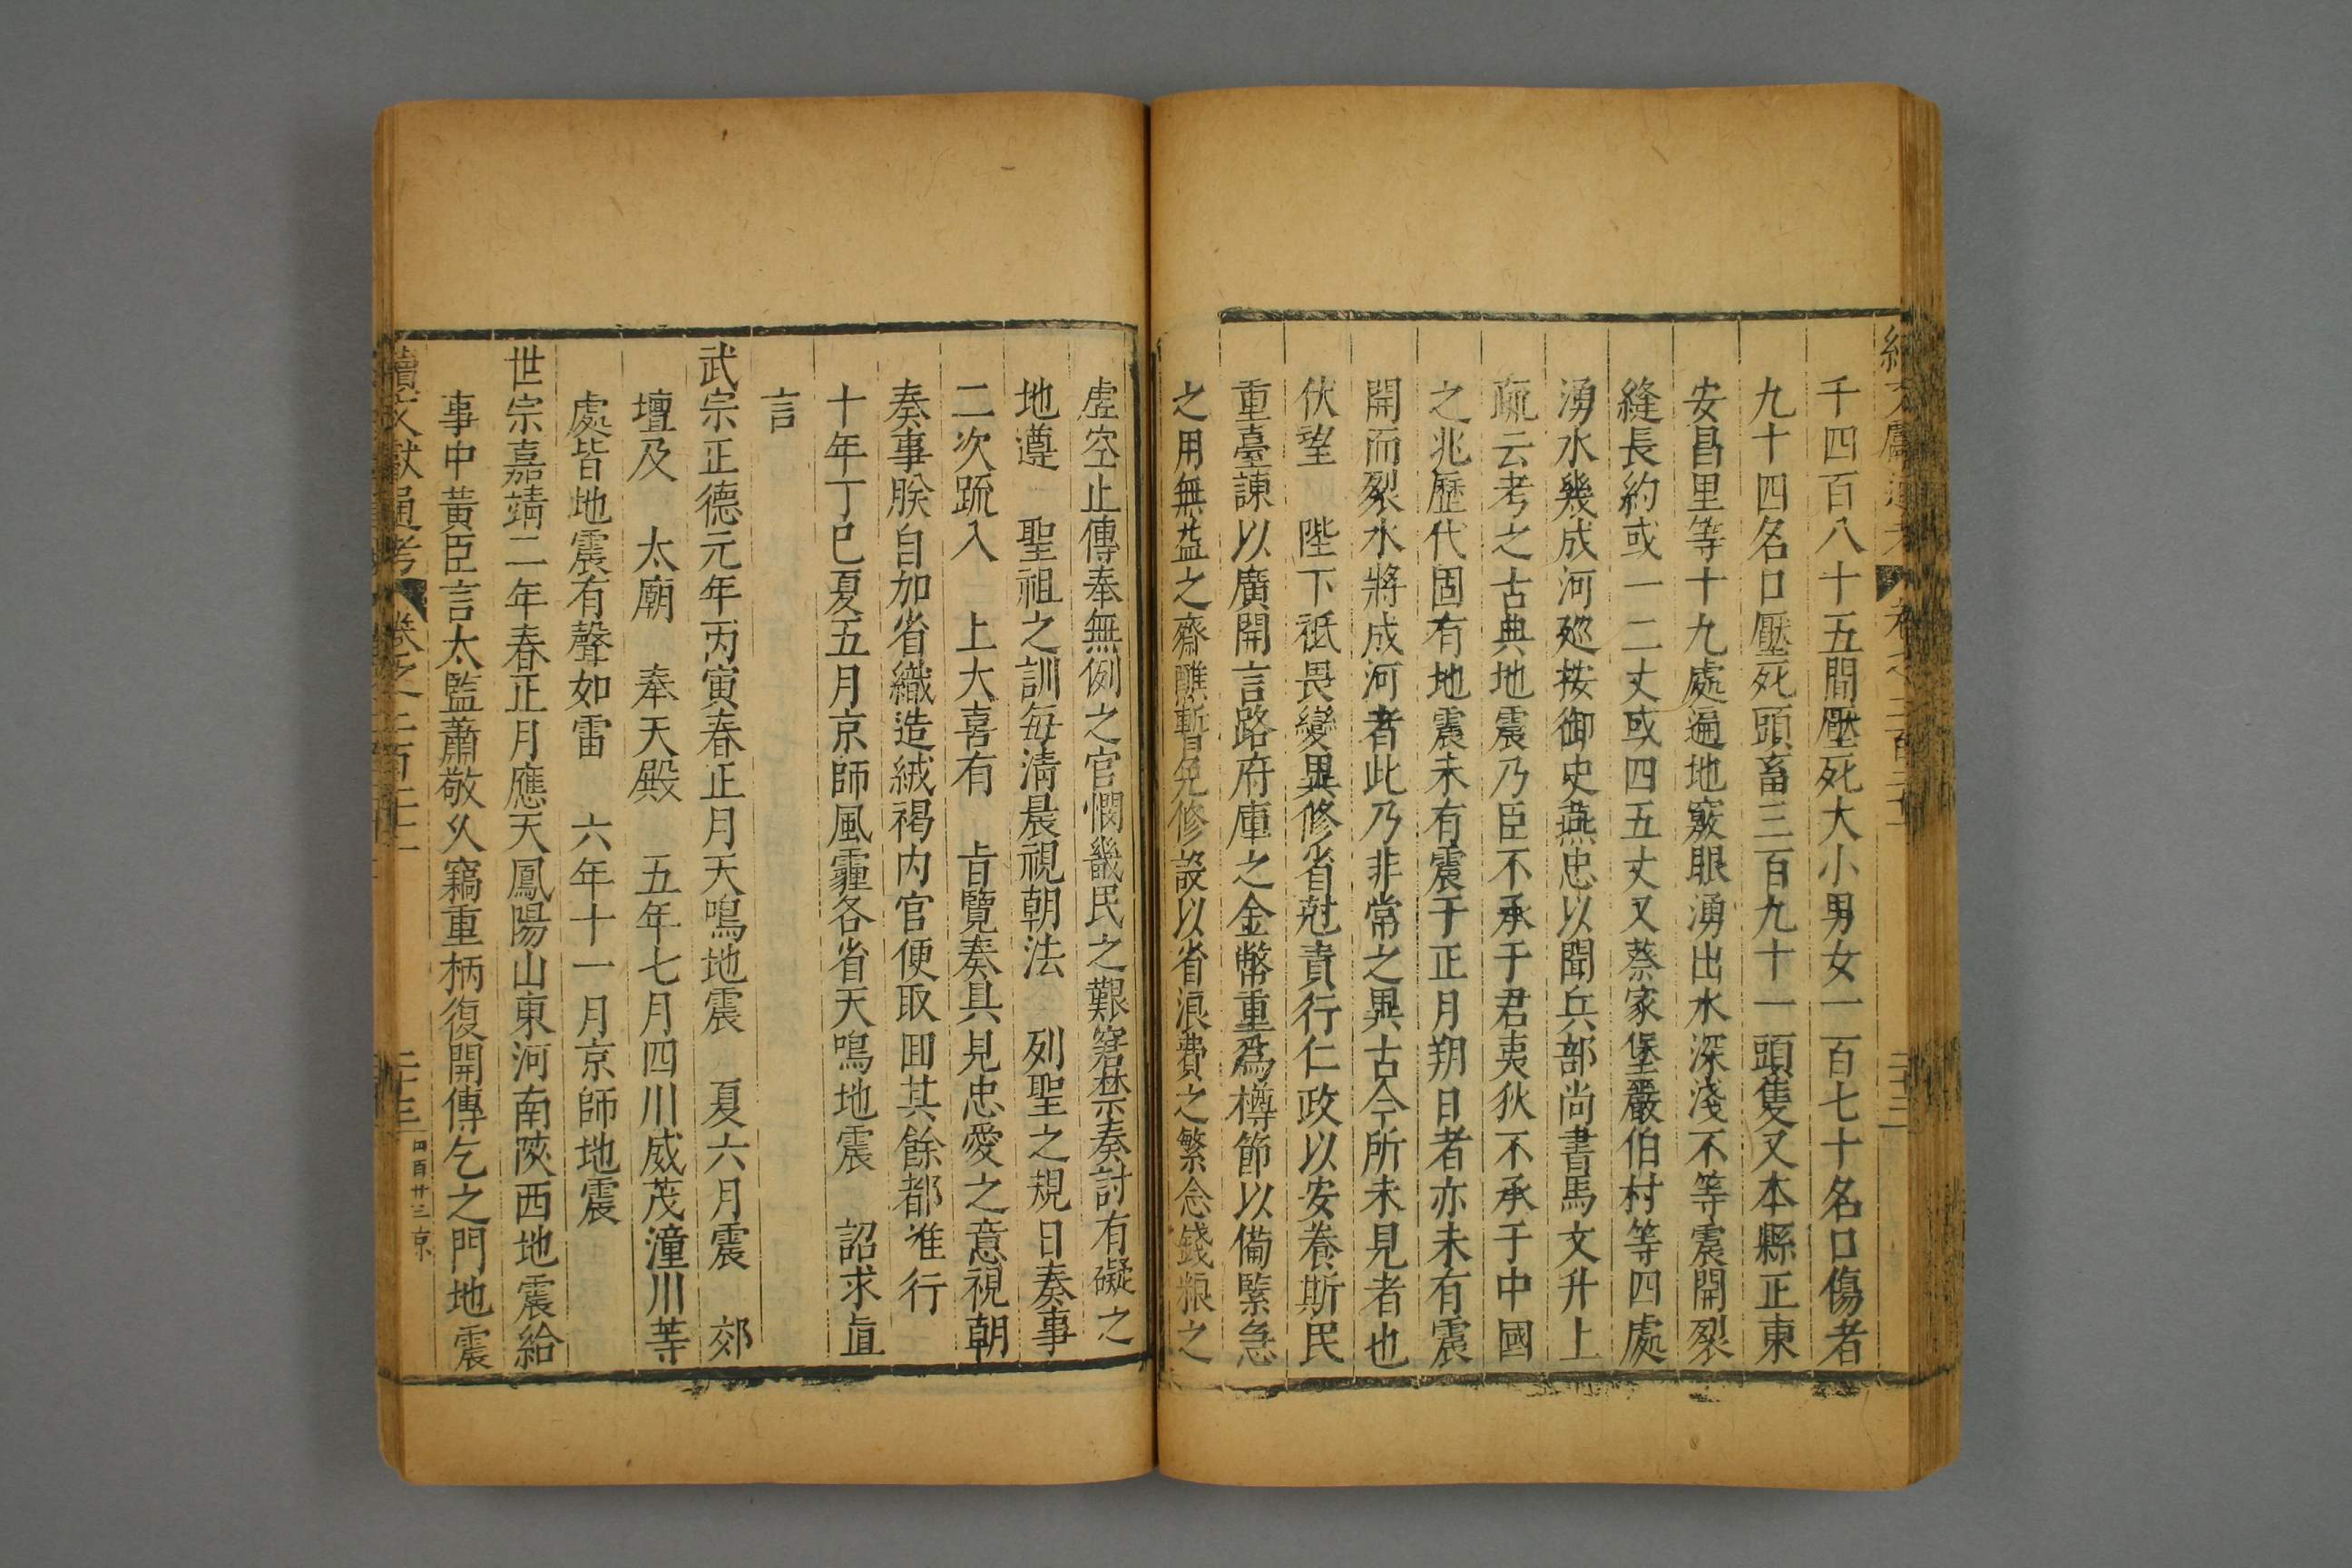 千四百八十五間壓死大小男女一百七十名口傷者
九十四名口壓死頭畜三百九十一頭隻又本縣正東
安昌里等十九處遍地竅眼湧出水深淺不等震開裂
縫長約或一二丈或四五丈又蔡家堡嚴伯村等四處
湧水幾成河廵按御史燕忠以聞兵部尚書馬文升上
疏云考之古典地震乃臣不承于君夷狄不承于中國
之兆歷代固有地震未有震于正月朔日者亦未有震
開而裂水將成河者此乃非常之異古今所未見者也
伏望 陛下祗畏變異修省尅責行仁政以安養斯民
重臺諫以廣開言路府庫之金幣重為樽節以備緊急
之用無益之齋醮暫免修設以省浪費之繁念錢粮之
虛空止傳奉無例之官憫畿民之艱窘禁奏討有礙之
地遵 聖祖之訓每清晨視朝法 列聖之規日奏事
二次疏入 上大喜有 旨覽奏具見忠愛之意視朝
奏事朕自加省織造絨褐内官便取回其餘都准行
十年丁巳夏五月京師風霾各省天鳴地震 詔求直
言
武宗正德元年丙寅春正月天鳴地震 夏六月震 郊
壇及 太廟 奉天殿 五年七月四川威茂潼川等
處皆地震有聲如雷 六年十一月京師地震
世宗嘉靖二年春正月應天鳳陽山東河南陝西地震給
事中黃臣言太監蕭敬乆竊重柄復開傳乞之門地震
續文獻通考 卷之二百二十一 二十三 四百廿三 京